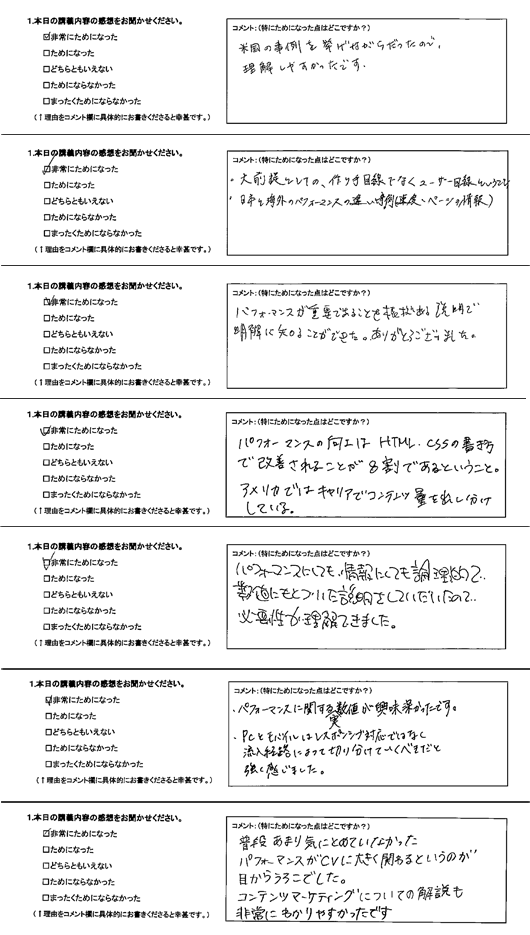 1.本日の講義内容の感想をお聞かせください。
☑非常にためになった
□ためになった
□どちらともいえない
□ためにならなかった
□まったくためにならなかった
(↑理由をコメント欄に具体的にお書きくださると幸甚です。)
コメント:(特にためになった点はどこですか?)
米国の事例を挙げながらだったので、
理解しやすかったです.
1.本日の講義内容の感想をお聞かせください。
☑非常にためになった
□ためになった
□どちらともいえない
□ためにならなかった
□まったくためにならなかった
(↑理由をコメント欄に具体的にお書きくださると幸甚です。)
コメント:(特にためになった点はどこですか?)
・大前提としての、作り手目線でなくユーザー目線というところ
・日本と海外のパフォーマンスの違い、事例(速度、ページの情報)
1.本日の講義内容の感想をお聞かせください。
☑非常にためになった
□ためになった
□どちらともいえない
□ためにならなかった
□まったくためにならなかった
(↑理由をコメント欄に具体的にお書きくださると幸甚です。)
コメント:(特にためになった点はどこですか?)
パフォーマンスが重要であることを根拠ある説明で
明解に知ることができた。ありがとうございました。
1.本日の講義内容の感想をお聞かせください。
☑非常にためになった
□ためになった
□どちらともいえない
□ためにならなかった
□まったくためにならなかった
(↑理由をコメント欄に具体的にお書きくださると幸甚です。)
コメント:(特にためになった点はどこですか?)
パフォーマンスの向上は HTML・CSSの書き方
で改善されることが8割であるということ。
アメリカではキャリアでコンテンツ量を出し分け
している。
1.本日の講義内容の感想をお聞かせください。
☑非常にためになった
□ためになった
□どちらともいえない
□ためにならなかった
□まったくためにならなかった
(↑理由をコメント欄に具体的にお書きくださると幸甚です。)
コメント:(特にためになった点はどこですか?)
パフォーマンスにしても、情報にしても論理的で、
数値にもとづいた説明をしていただいたので、
必要性が理解できました。
1.本日の講義内容の感想をお聞かせください。
☑非常にためになった
□ためになった
□どちらともいえない
□ためにならなかった
□まったくためにならなかった
(↑理由をコメント欄に具体的にお書きくださると幸甚です。)
コメント:(特にためになった点はどこですか?)
・パフォーマンスに関する実数値が興味深かったです。
・PCとモバイルはレスポンシブ対応ではなく
流入経路によって切り分けていくべきだと
強く感じました。
1.本日の講義内容の感想をお聞かせください。
☑非常にためになった
□ためになった
□どちらともいえない
□ためにならなかった
□まったくためにならなかった
(↑理由をコメント欄に具体的にお書きくださると幸甚です。)
コメント:(特にためになった点はどこですか?)
普段あまり気にとめていなかった
パフォーマンスがCVに大きく関わるというのが
目からうろこでした。
コンテンツマーケティングについての解説も
非常にわかりやすかったです